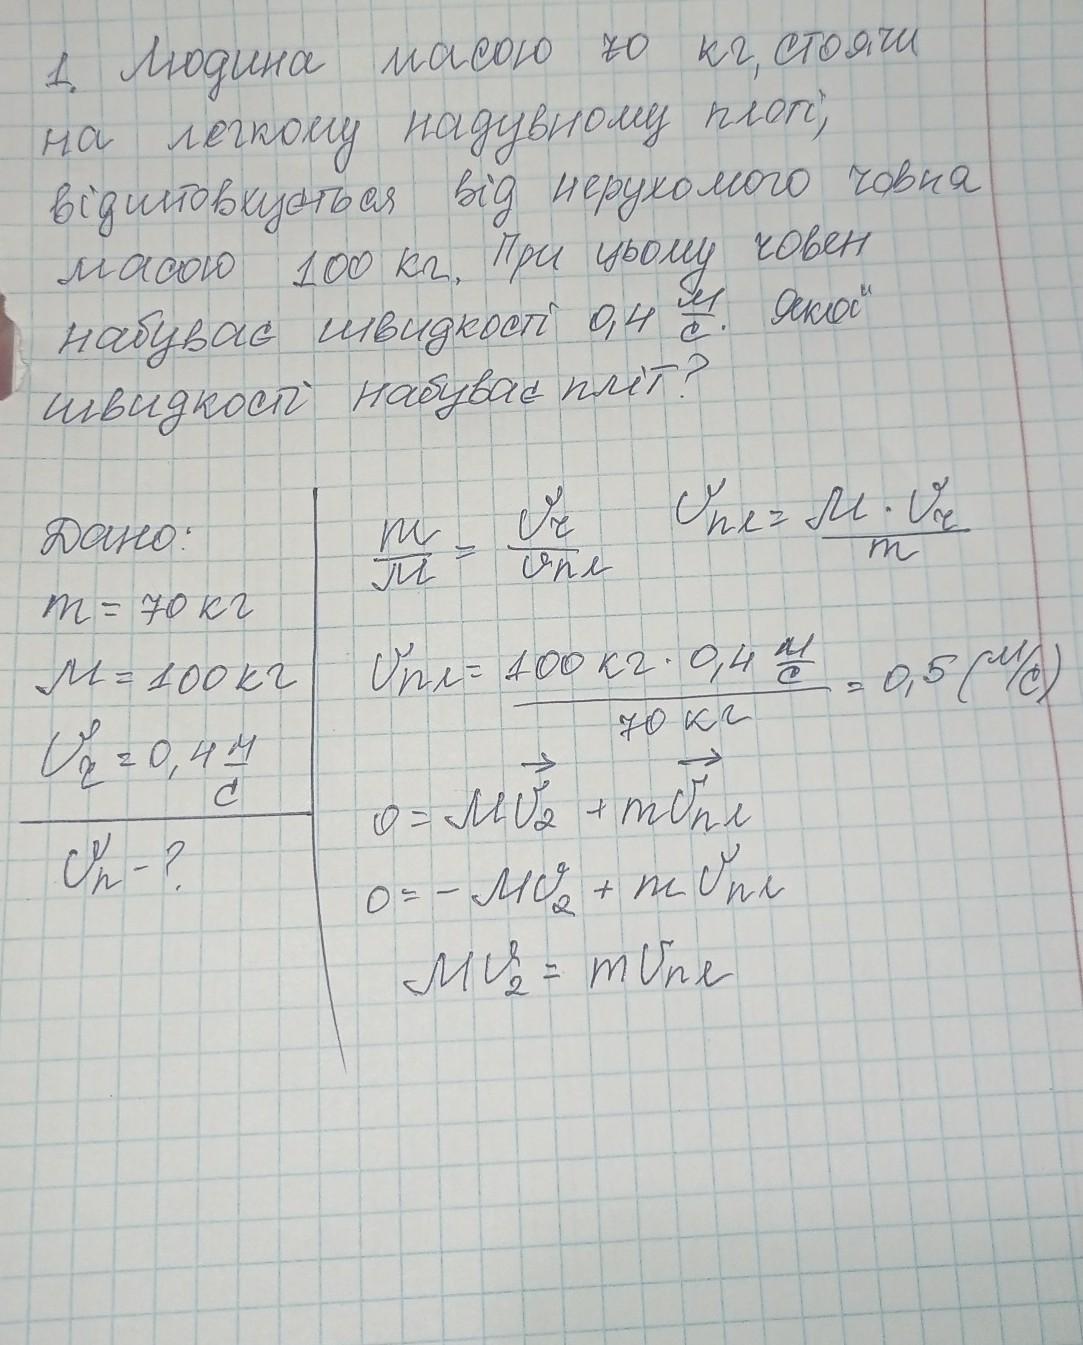 1. Людина масою 70 кг, стоячи
на легкому надувному плоті,
відштовхується від нерухомого човна
масою 100 кг. При цьому човен
набуває швидкості 0,4 м/с. Якої
швидкості набуває пліт?
Дано:
m = 70 кг
M = 100 кг
υч = 0,4 м/с
υп - ?
m/M = υч/υпл υпл = M · υч / m
υпл = 100 кг · 0,4 м/с / 70 кг = 0,5 (м/с)
0 = Mυ⃗2 + mυ⃗пл
0 = - Mυ2 + mυпл
Mυ2 = mυпл